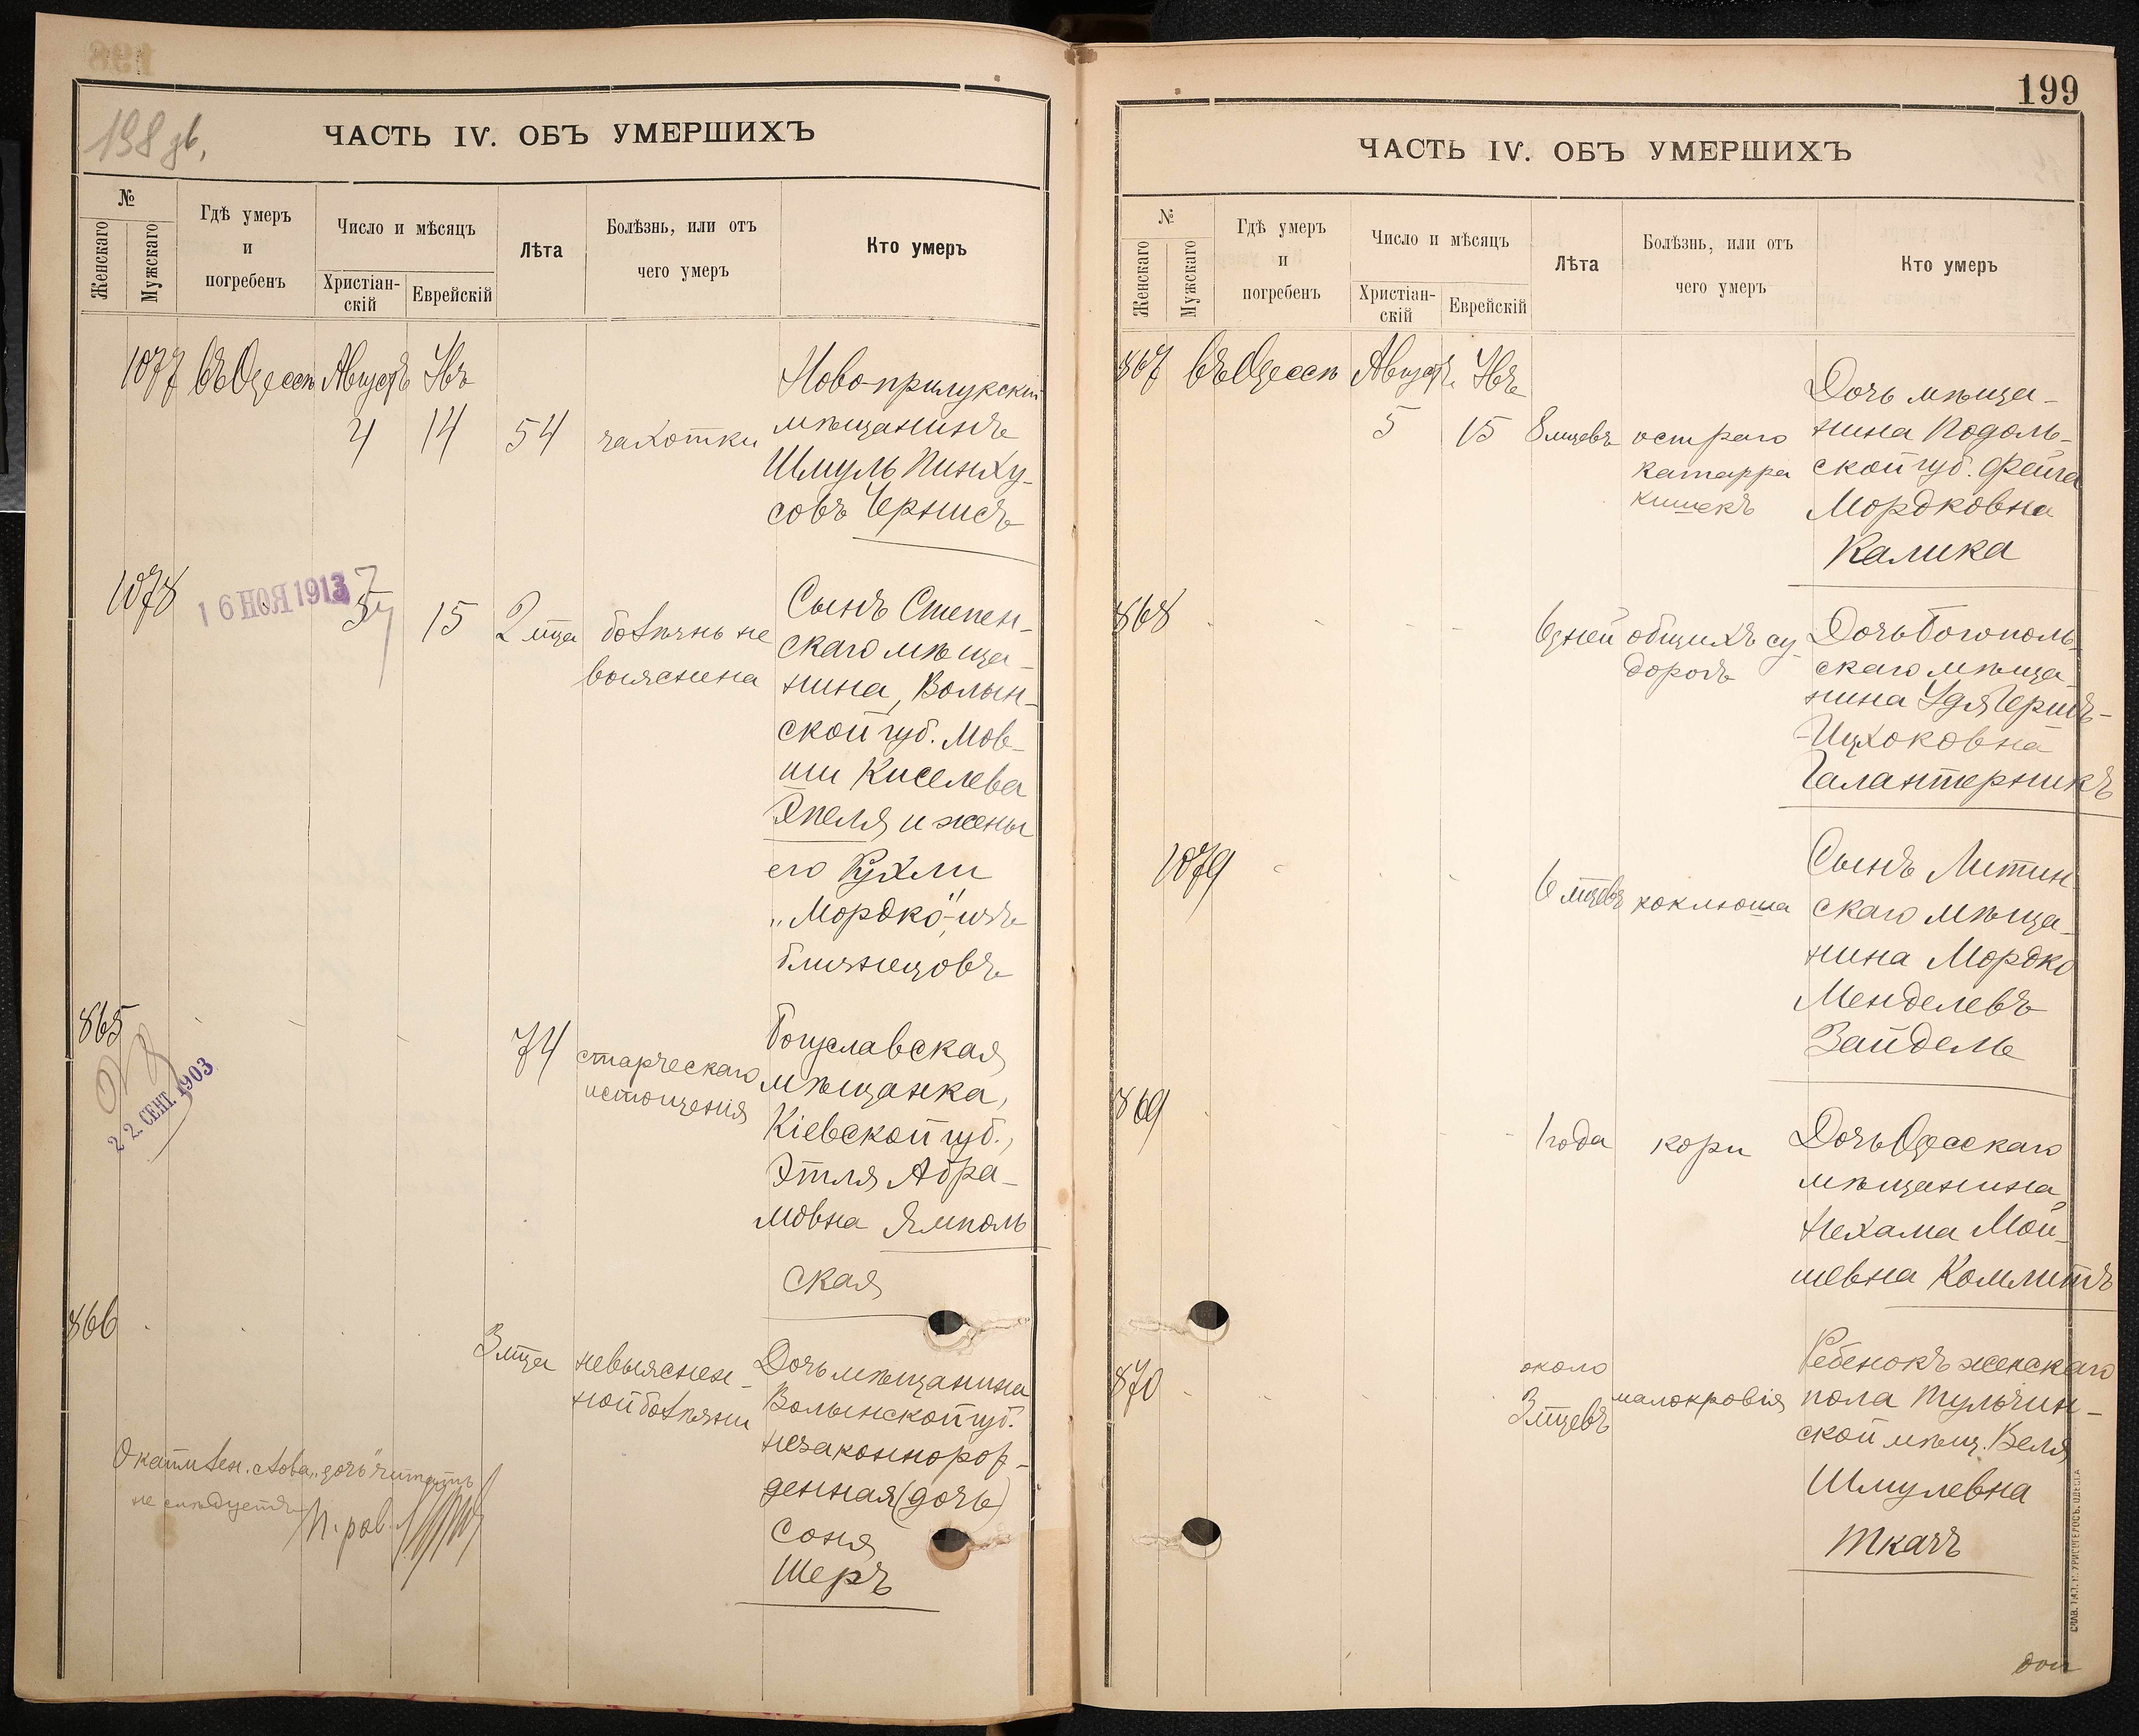 198 дв.
ЧАСТЬ IV. ОБЪ УМЕРШИХЪ
№
Женскаго
Мужскаго
Гдѣ умеръ
и
погребенъ
Число и мѣсяцъ
Христіан-
скій
Еврейскій
Лѣта
Болѣзнь, или отъ
чего умеръ
Кто умеръ
1077 въ Одессѣ Августъ Увъ
4 14 54 чахотки
Ново-прилукскій
мѣщанинъ
Шмуль Пинху-
совъ Чернисъ
1078
16 НОЯ 1913
5 15 2 мца болѣзнь не
выяснена
Сынъ Степен-
скаго мѣща-
нина, Волын-
ской губ. Мов-
ши Киселева
Эпеля и жены
его Рухли
„Мордко", изъ
близнецовъ
865
22. СЕНТ. 1903
74 старческаго
истощенія
Богуславская
мѣщанка,
Кіевской губ.,
Этля Абра-
мовна Ямполь
ская
866
3 мца невыяснен-
ной болѣзни
Дочь мѣщанина
Волынской губ.
незаконнорож-
денная (дочь)
Соня
Шеръ
слова „дочь" читать
не слѣдуетъ
199
ЧАСТЬ IV. ОБЪ УМЕРШИХЪ
№
Женскаго
Мужскаго
Гдѣ умеръ
и
погребенъ
Число и мѣсяцъ
Христіан-
скій
Еврейскій
Лѣта
Болѣзнь, или отъ
чего умеръ
Кто умеръ
867 въ Одессѣ Августъ Увъ
5 15 8 мцевъ остраго
катарра
кишекъ
Дочь мѣща-
нина Подоль-
ской губ. Фейга
Мордковна
Калика
868
6 дней общихъ су-
дорогъ
Дочь Богополь-
скаго мѣща-
нина Удя Гершъ-
Ицхоковна
Галантерникъ
1079
6 мцевъ коклюша
Сынъ Литин-
скаго мѣща-
нина Мордко
Менделевъ
Зайдель
869
1 года кори
Дочь Одесскаго
мѣщанина,
Нехама Мой-
шевна Комлитъ
870
около
3 мцевъ малокровія
Ребенокъ женскаго
пола Тульчин-
ской мѣщ. Веля
Шмулевна
Ткачъ